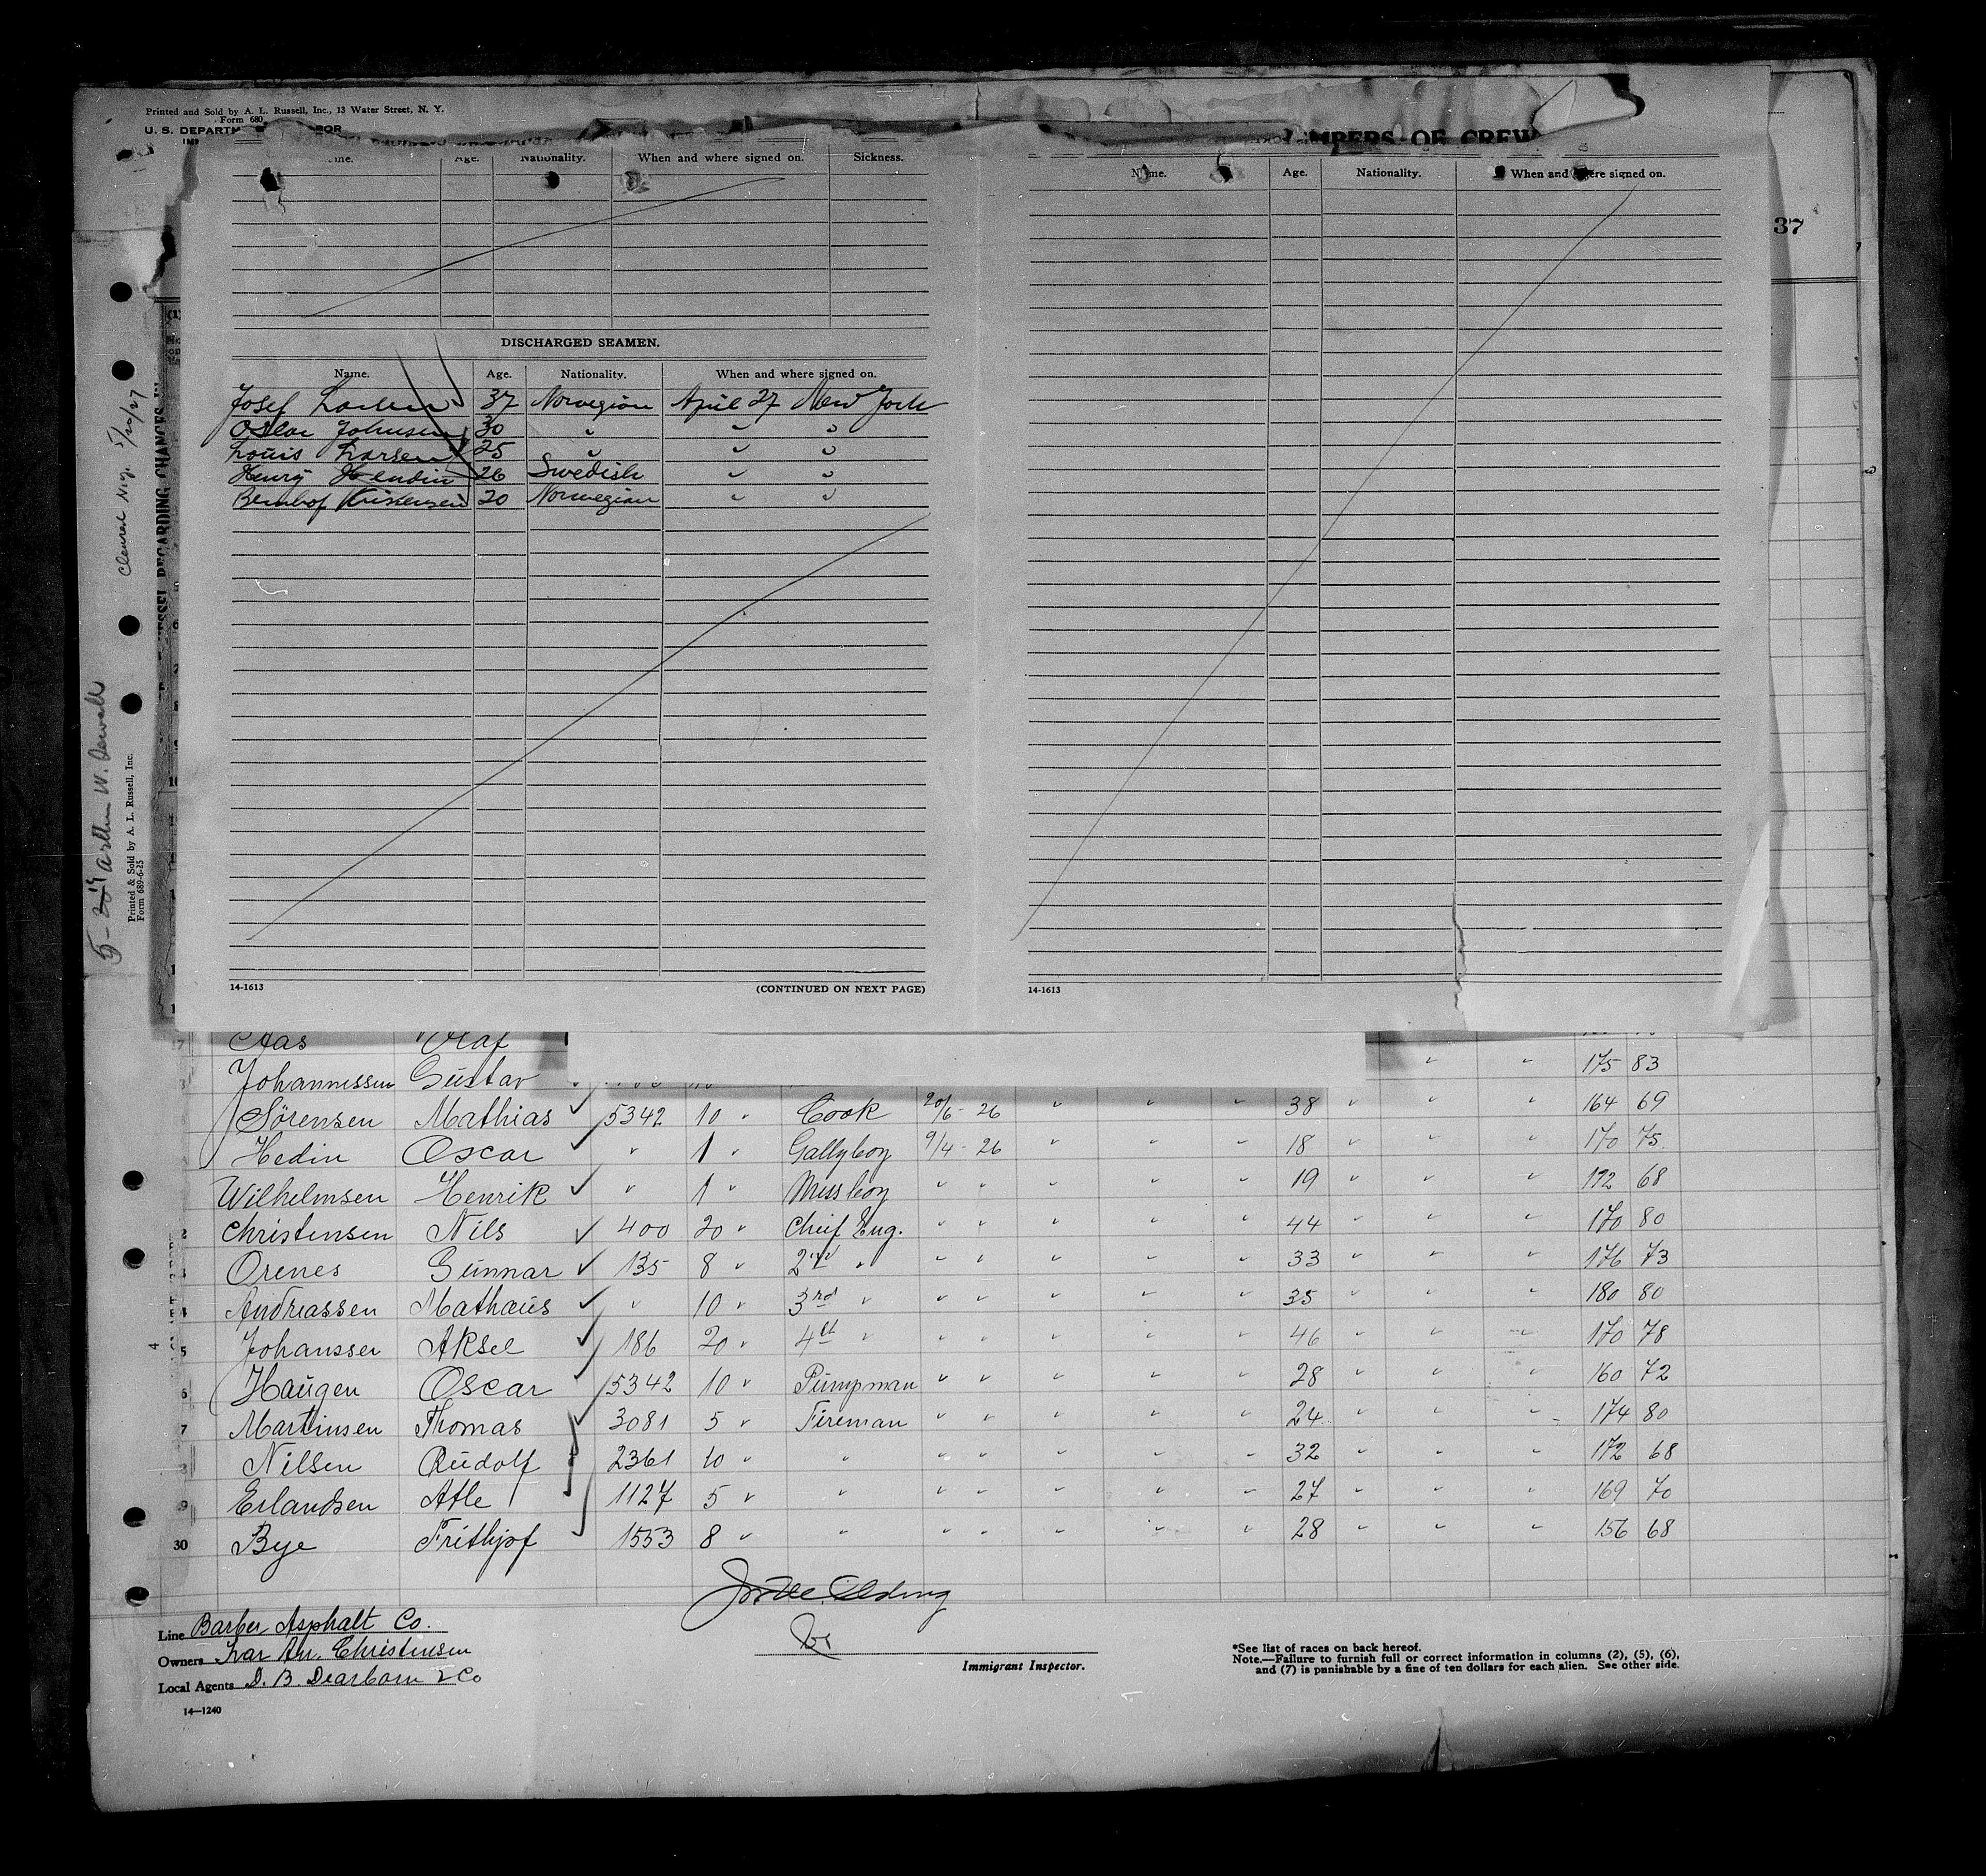 Printed and Sold by A. L. Russell, Inc., 13 Water Street, N. Y.
Form 680
U. S. DEPARTM
MBERS OF CREW
Age. Nationality. When and where signed on. Sickness.
Name. Age. Nationality. When and where signed on.
37
DISCHARGED SEAMEN.
Name. Age. Nationality. When and where signed on.
Josef Larsen 37 Norwegian April 27 New York
Oscar Johnsen 30 " " "
Louis Larsen 25 " " "
Henry Hendin 26 Swedish " "
Bernhof Kristensen 20 Norwegian " "
14-1613 (CONTINUED ON NEXT PAGE)
14-1613
REGARDING CHANGES IN
Cleared 5/20/27
Arthur W. Sewall
Printed & Sold by A. L. Russell, Inc.
Form 689-6-25
Aas Olaf
Johannessen Gustav " " 175 83
Sörensen Mathias ✓ 5342 10 " Cook 20/6 - 26 " " " 38 " " " 164 69
Hedin Oscar ✓ " 1 " Gallyboy 9/4 - 26 " " " 18 " " " 170 75
Wilhelmsen Henrik ✓ " 1 " Messboy " " " " " 19 " " " 172 68
Christensen Nils ✓ 400 20 " Chief Eng. " " " " " 44 " " " 170 80
Orenes Gunnar ✓ 135 8 " 2nd " " " " " " 33 " " " 176 73
Andreassen Mathaus ✓ " 10 " 3rd " " " " " " 35 " " " 180 80
Johanssen Aksel ✓ 186 20 " 4th " " " " " " 46 " " " 170 78
Haugen Oscar ✓ 5342 10 " Pumpman " " " " " 28 " " " 160 72
Martinsen Thomas ✓ 3081 5 " Fireman " " " " " 24 " " " 174 80
Nilsen Rudolf ✓ 2361 10 " " " " " " " 32 " " " 172 68
Erlandsen Atle ✓ 1127 5 " " " " " " " 27 " " " 169 70
30 Bye Frithjof ✓ 1553 8 " " " " " " " 28 " " " 156 68
Line Barber Asphalt Co.
Owners Ivar An. Christensen
Local Agents D. B. Dearborn & Co
Immigrant Inspector.
*See list of races on back hereof.
Note.—Failure to furnish full or correct information in columns (2), (5), (6),
and (7) is punishable by a fine of ten dollars for each alien. See other side.
14—1240